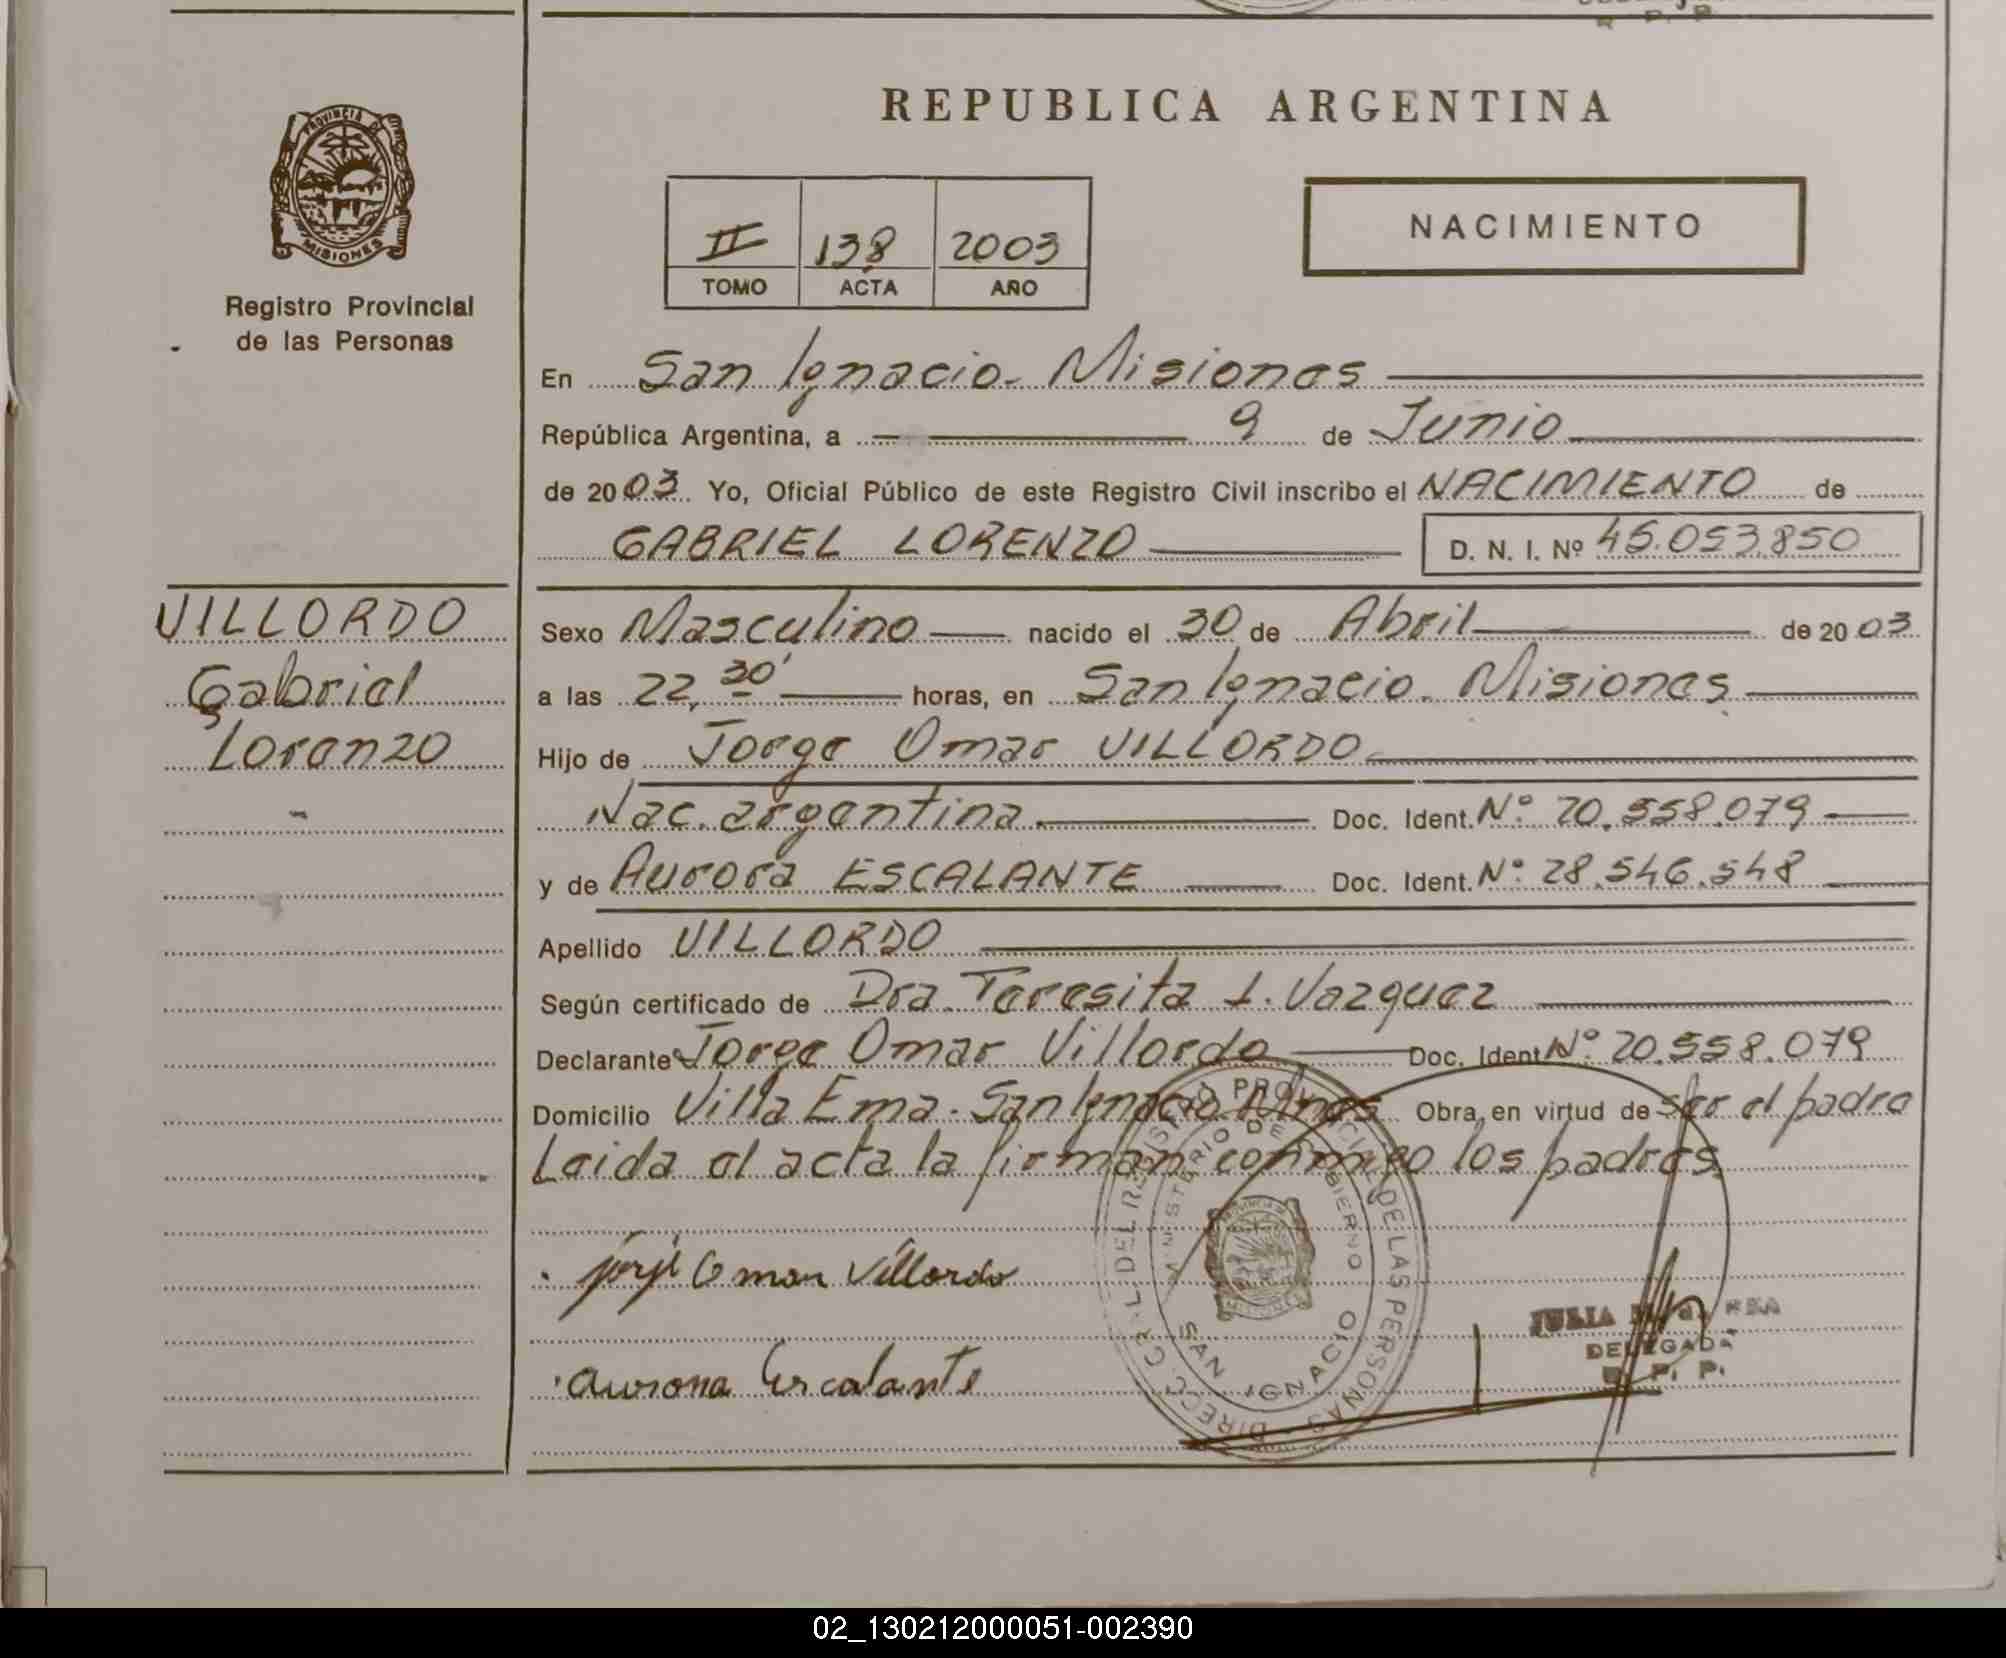 REPUBLICA ARGENTINA
PROVINCIA DE
MISIONES
Registro Provincial
de las Personas
II 138 2003
TOMO ACTA AÑO
NACIMIENTO
En San Ignacio - Misiones
República Argentina, a 9 de Junio
de 2003 Yo, Oficial Público de este Registro Civil inscribo el NACIMIENTO de
GABRIEL LORENZO D. N. I. Nº 45.053.850
VILLORDO
Gabriel
Lorenzo
Sexo Masculino nacido el 30 de Abril de 2003
a las 22,30' horas, en San Ignacio - Misiones
Hijo de Jorge Omar VILLORDO
Nac. argentina. Doc. Ident. Nº 20.558.079
y de Aurora ESCALANTE Doc. Ident. Nº 28.546.548
Apellido VILLORDO
Según certificado de Dra. Teresita L. Vazquez
Declarante Jorge Omar Villordo Doc. Ident Nº 20.558.079
Domicilio Villa Ema - San Ignacio Mnes Obra, en virtud de ser el padre
Leida el acta la firman conmigo los padres.
Jorge Omar Villordo
Aurora Escalante
DIRECC. GRAL. DEL REGISTRO PROVINCIAL DE LAS PERSONAS
MINISTERIO DE GOBIERNO
SAN IGNACIO
JULIA
DELEGADA
R. P. P.
02_130212000051-002390